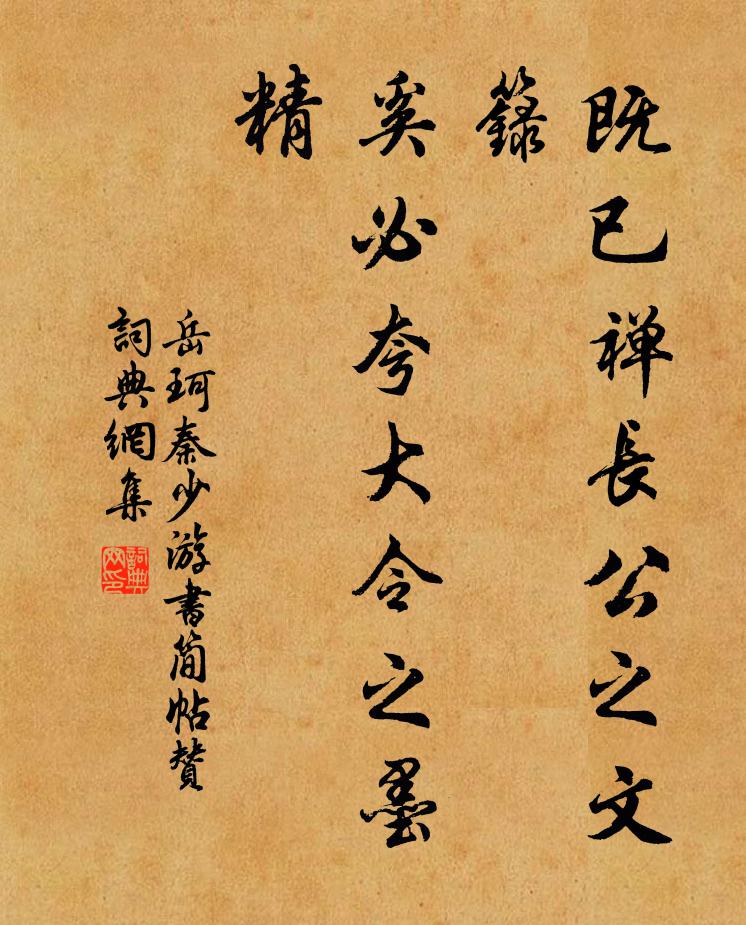 既已禅長公之文
籙
奚必夸大令之墨
精
岳珂秦少游書简帖赞
詞典網集
詞典网印